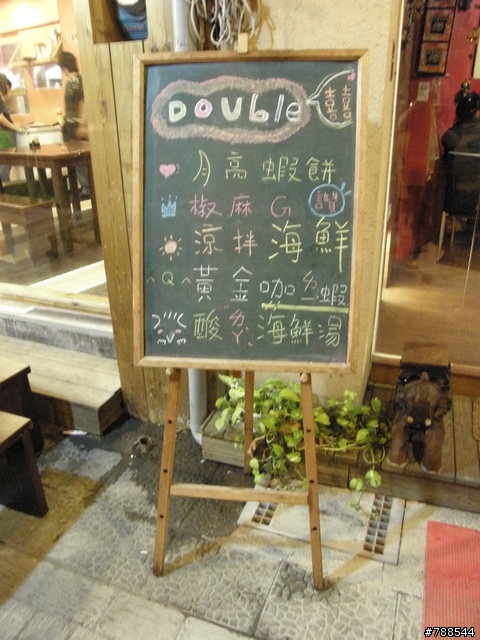 DOUBle 囍
月高蝦餅
椒麻G 讚
涼拌海鮮
Q 黃金咖幺蝦
酸幺海鮮湯
#788544